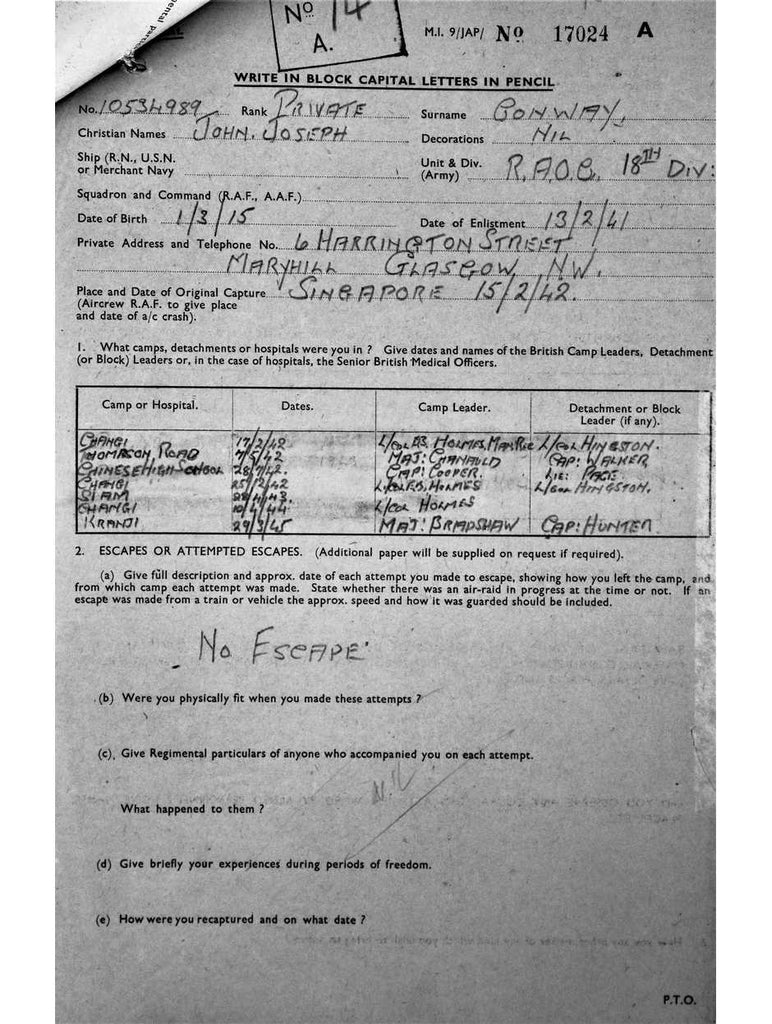 ental par
No 14
A.
M.I. 9/JAP/ No 17024 A
WRITE IN BLOCK CAPITAL LETTERS IN PENCIL
No. 10534989 Rank PRIVATE Surname CONWAY,
Christian Names JOHN. JOSEPH Decorations NIL
Ship (R.N., U.S.N. or Merchant Navy
Unit & Div. (Army) R.A.O.C. 18TH DIV:
Squadron and Command (R.A.F., A.A.F.)
Date of Birth 1/3/15 Date of Enlistment 13/2/41
Private Address and Telephone No. 6 HARRINGTON STREET
MARYHILL GLASGOW, N.W.
Place and Date of Original Capture SINGAPORE 15/2/42.
(Aircrew R.A.F. to give place
and date of a/c crash).
1. What camps, detachments or hospitals were you in ? Give dates and names of the British Camp Leaders, Detachment
(or Block) Leaders or, in the case of hospitals, the Senior British Medical Officers.
Camp or Hospital. Dates. Camp Leader. Detachment or Block Leader (if any).
CHANGI 17/2/42 L/COL E.B. HOLMES, L/COL HINGSTON.
THOMPSON ROAD 7/5/42 MAJ: CAP: WALKER
CHINESE HIGH SCHOOL 28/7/42. CAP: COOPER LIE: PAGE
CHANGI 25/12/42 L/COL E.B. HOLMES L/COL HINGSTON.
SIAM 28/4/43.
CHANGI 10/4/44 L/COL HOLMES
KRANJI 29/3/45 MAJ: BRADSHAW CAP: HUNTER
2. ESCAPES OR ATTEMPTED ESCAPES. (Additional paper will be supplied on request if required).
(a) Give full description and approx. date of each attempt you made to escape, showing how you left the camp, and
from which camp each attempt was made. State whether there was an air-raid in progress at the time or not. If an
escape was made from a train or vehicle the approx. speed and how it was guarded should be included.
NO ESCAPE
(b) Were you physically fit when you made these attempts ?
(c), Give Regimental particulars of anyone who accompanied you on each attempt.
NIL
What happened to them ?
(d) Give briefly your experiences during periods of freedom.
(e) How were you recaptured and on what date ?
P.T.O.